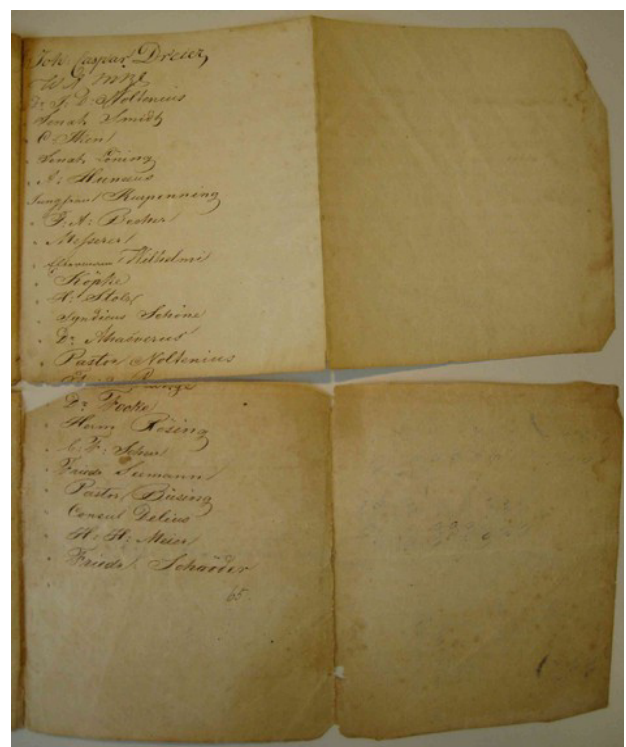 Joh Caspar Dreier
Dr. J. D. Noltenius
Senat. Smidt
C. Iken
Senat. Löning
A: Hunaeus
Jungfrau Kurpenning
J: A: Becker
Messerer
Eltermann Wilhelmi
Köpke
H: Stolz
Syndicus Schöne
Dr. Ahasverus
Pastor Noltenius
Dr. Focke
Herm Rösing
C: F:
Friedr Lumann
Pastor Büsing
Consul Delius
H: H: Meier
Friedr. Schröder
65.